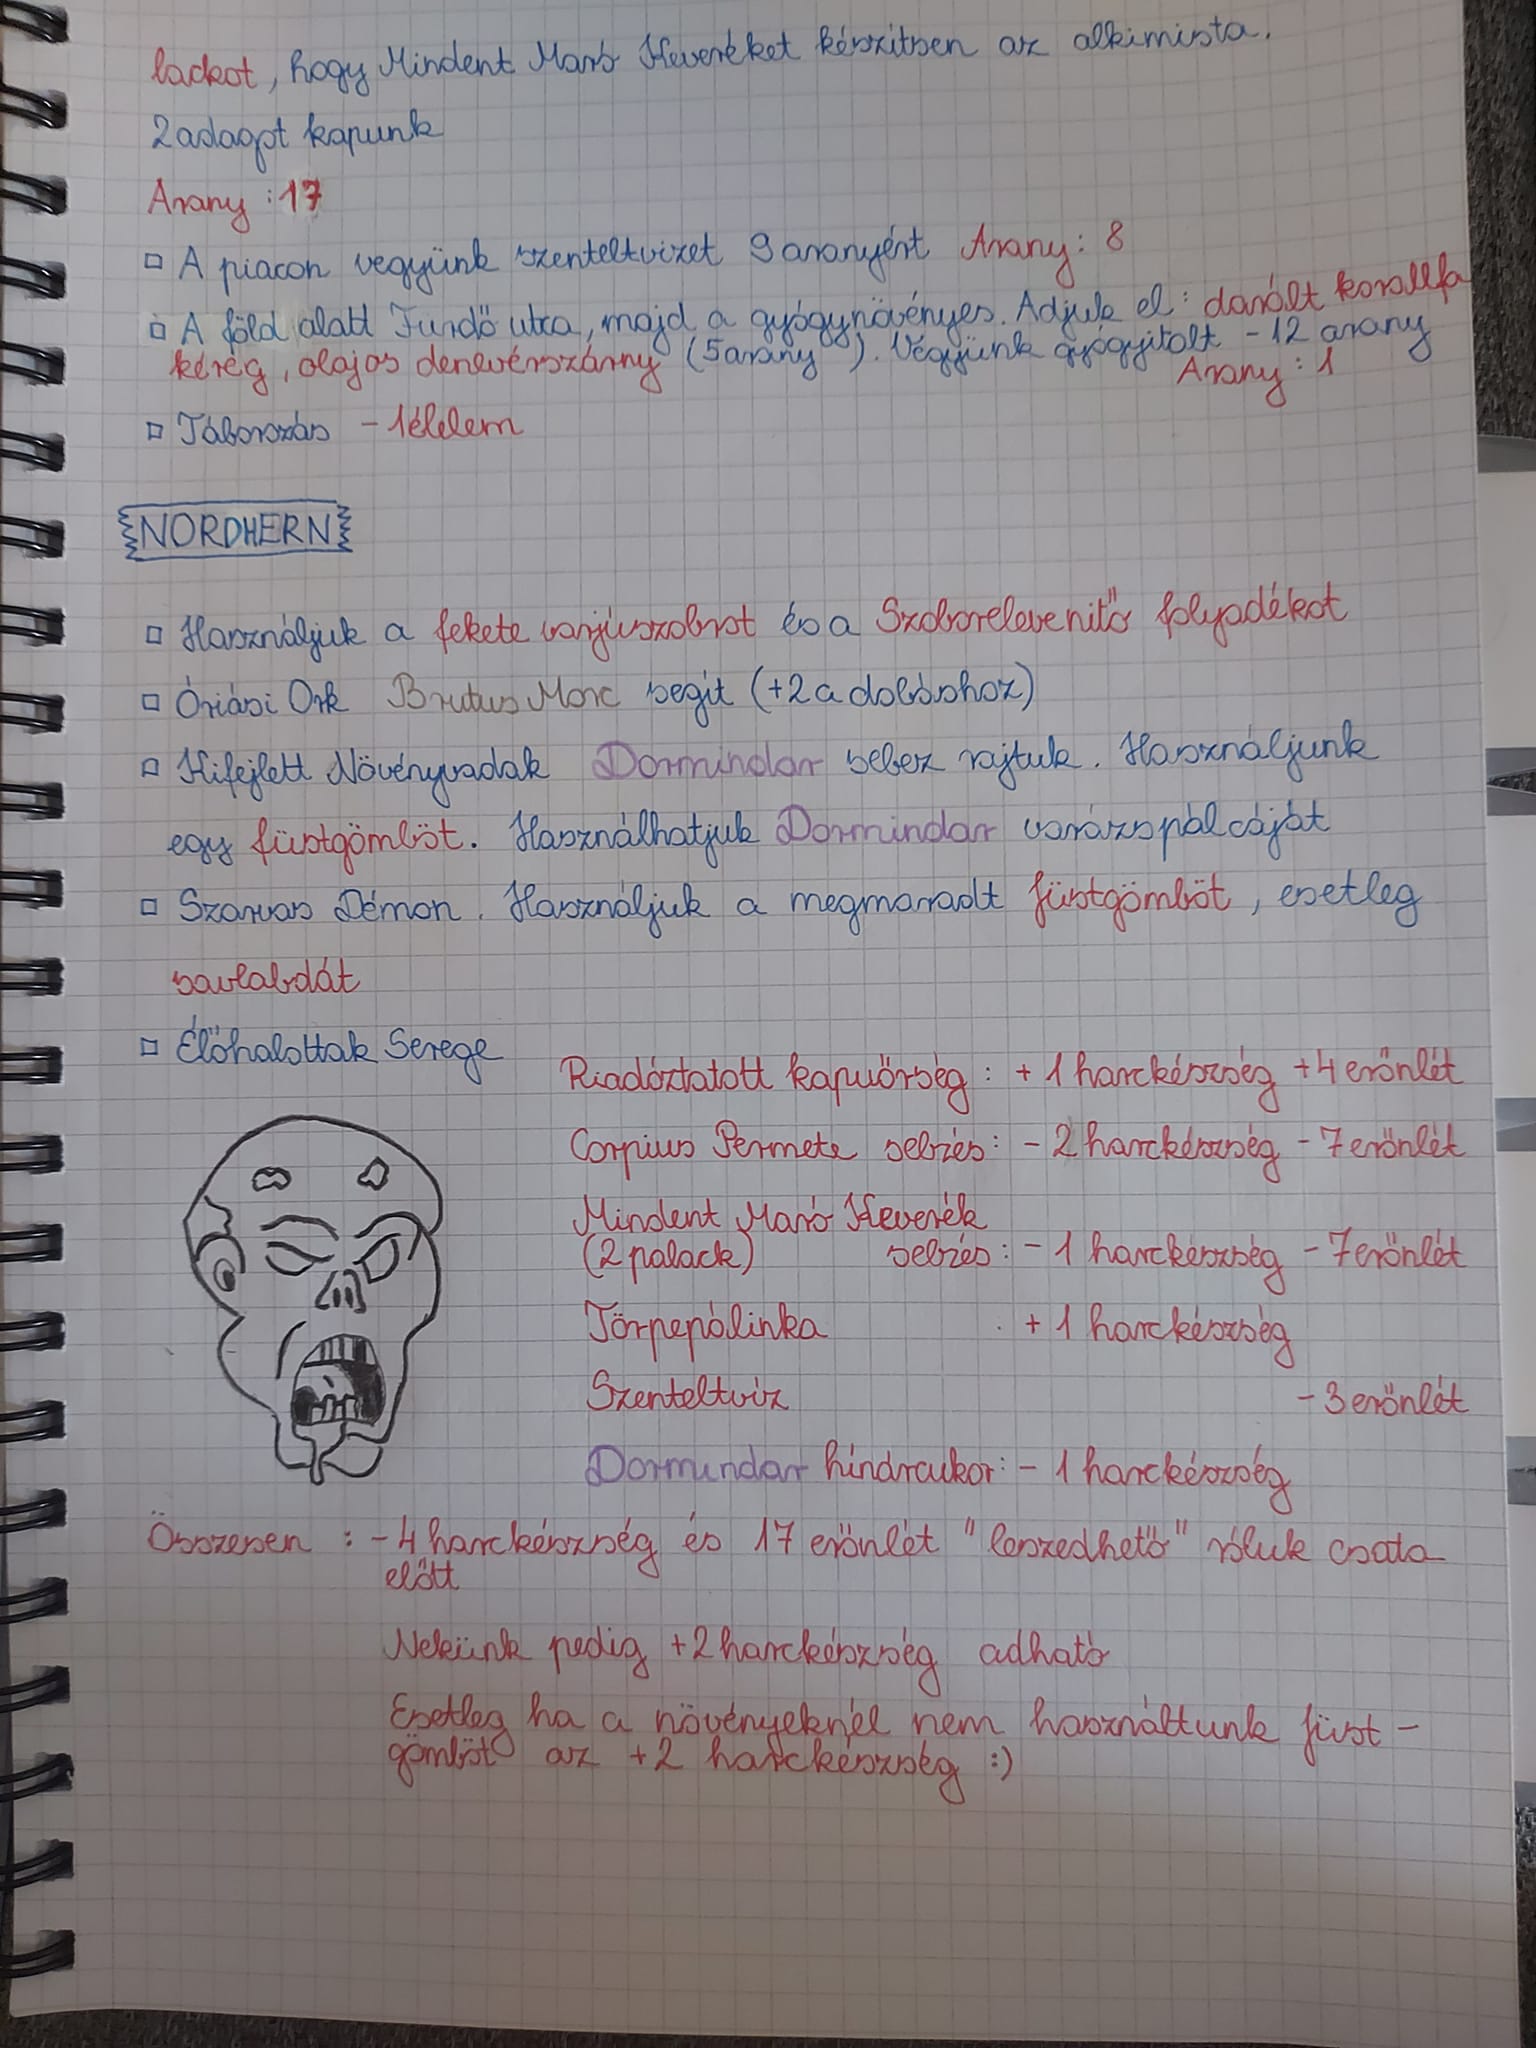 lackot, hogy Mindent Maró Keveréket készítsen az alkimista.
2 adagot kapunk
Arany : 17
□ A piacon vegyünk szenteltvizet 9 aranyért Arany: 8
□ A föld alatt Fürdő utca, majd a gyógynövényes. Adjuk el: darált korallfa
kéreg, olajos denevérszárny (5 arany). Vegyünk gyógyitalt - 12 arany
Arany : 1
□ Táborozás - 1 élelem
NORDHERN
□ Használjuk a fekete varjúszobrot és a Szoborelevenítő folyadékot
□ Óriási Ork Brutus Morc segít (+2 a dobáshoz)
□ Kifejlett Növényvadak Dormindar sebez rajtuk. Használjunk
egy füstgömböt. Használhatjuk Dormindar varázspálcáját
□ Szarvas Démon. Használjuk a megmaradt füstgömböt, esetleg
savlabdát
□ Élőhalottak Serege
Riadóztatott kapuőrség : + 1 harckészség + 4 erőnlét
Corpius Permete sebzés : - 2 harckészség - 7 erőnlét
Mindent Maró Keverék
(2 palack) sebzés : - 1 harckészség - 7 erőnlét
Törpepálinka + 1 harckészség
Szenteltvíz - 3 erőnlét
Dormindar hínárcukor: - 1 harckészség
Összesen : - 4 harckészség és 17 erőnlét "leszedhető" róluk csata
előtt
Nekünk pedig +2 harckészség adható
Esetleg ha a növényeknél nem használtunk füst-
gömböt az +2 harckészség :)